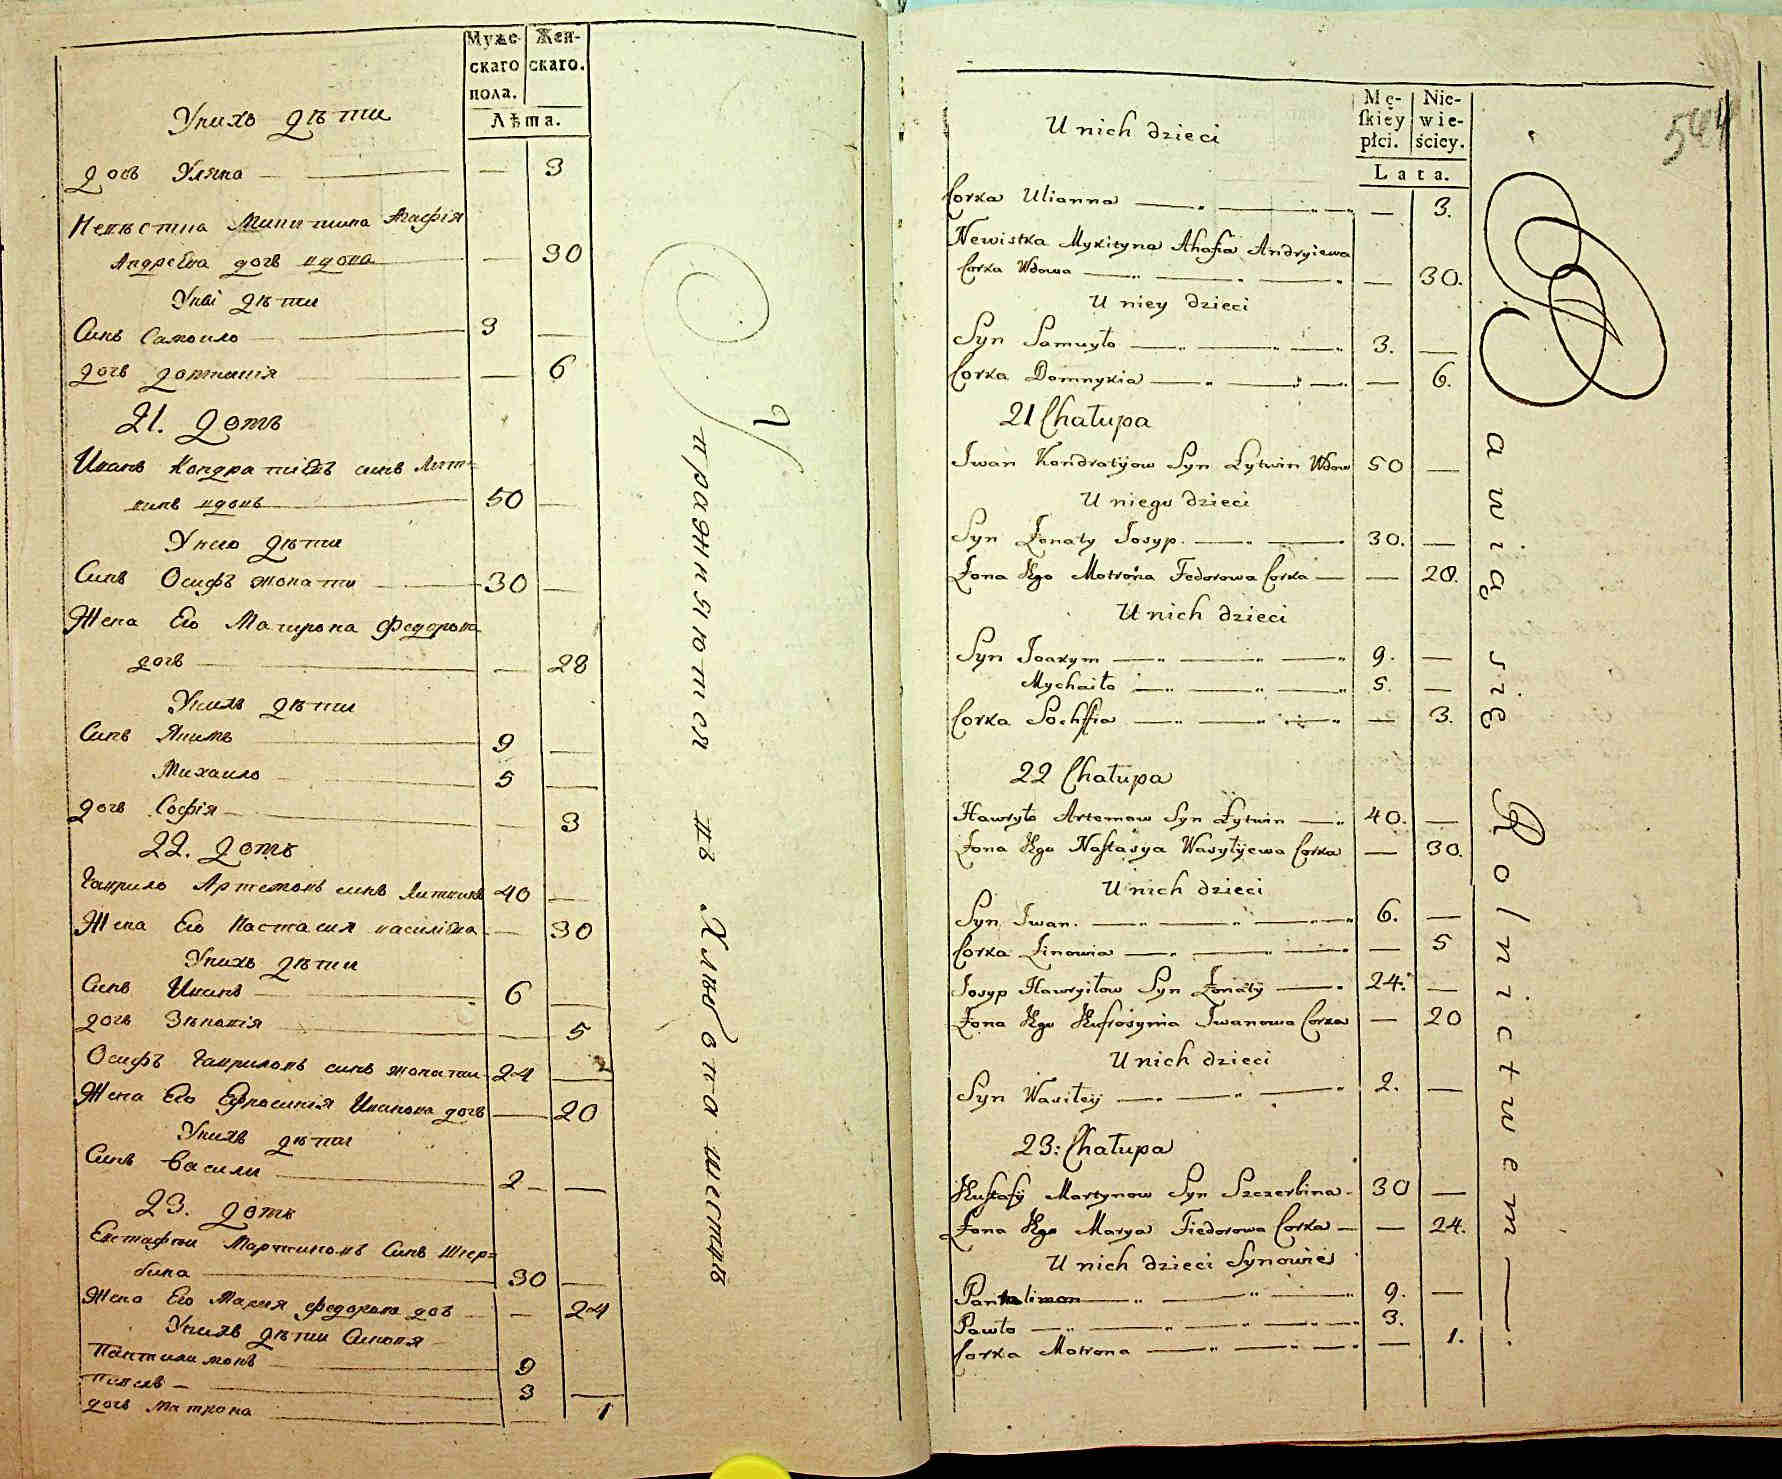 Муже-
скаго
пола.
Жен-
скаго.
Лѣта.
Унихъ дѣти
дочь Уляна — — 3
Невѣстка Микитина Агафія
Андреѣва дочь вдова — — 30
Унеі дѣти
Синъ Самоило — 3 —
дочь Домникія — — 6
21. Домъ
Иванъ Кондратіевъ синъ Лит=
винъ вдовъ — 50 —
Унего дѣти
Синъ Осифъ жонати — 30 —
Жена Его Матрона Федорова
дочь — — 28
Унихъ дѣти
Синъ Якимъ — 9 —
Михаило — 5 —
дочь Софія — — 3
22. Домъ
Гаврило Артемовъ синъ Литвинъ 40 —
Жена Его Настасия василіева — 30
Унихъ дѣти
Синъ Иванъ — 6 —
дочь Зѣновія — — 5
Осифъ Гавриловъ синъ жонати 24 —
Жена Его Ефросинія Иванова дочь — 20
Унихъ дѣти
Синъ Васили — 2 —
23. Домъ
Евстафи Мартиновъ Синъ Щер=
бина — 30 —
Жена Его Мария федорова дочь — 24
Унихъ дѣти Синовя
Пантилимонъ — 9
Павелъ — 3 —
дочь Матрона — — 1
Упражняются въ Хлѣбопашествѣ
544
Mę-
ſkiey
płci.
Nie-
wie-
ściey.
Lata.
U nich dzieci
Corka Ulianna — — 3.
Newistka Mykityna Ahafia Andryiewa
Corka Wdowa — — 30.
U niey dzieci
Syn Samuyło — 3. —
Corka Domnykia — — 6.
21 Chałupa
Iwan Kondratijow Syn Lytwin Wdow 50 —
U niego dzieci
Syn Żonaty Iosyp. — 30. —
Żona Jego Motrona Fedorowa Corka — — 28.
U nich dzieci
Syn Joakym — 9. —
Mychaiło — 5. —
Corka Sochfia — — 3.
22 Chałupa
Hawryło Artemow Syn Łytwin — 40. —
Żona Jego Naſtasya Wasylijewa Corka — 30.
U nich dzieci
Syn Iwan. — 6. —
Corka Zinowia — — 5
Josyp Hawryłow Syn Żonaty — 24. —
Żona Jego Jefrosynia Iwanowa Corka — 20
U nich dzieci
Syn Wasiley — 2. —
23: Chałupa
Jeſtafij Martynow Syn Szczerbina 30 —
Żona Jego Marya Fiedorowa Corka — — 24.
U nich dzieci Synowie
Pantalimon — 9. —
Pawło — 3.
Corka Motrona — — 1.
Bawią się Rolnictwem